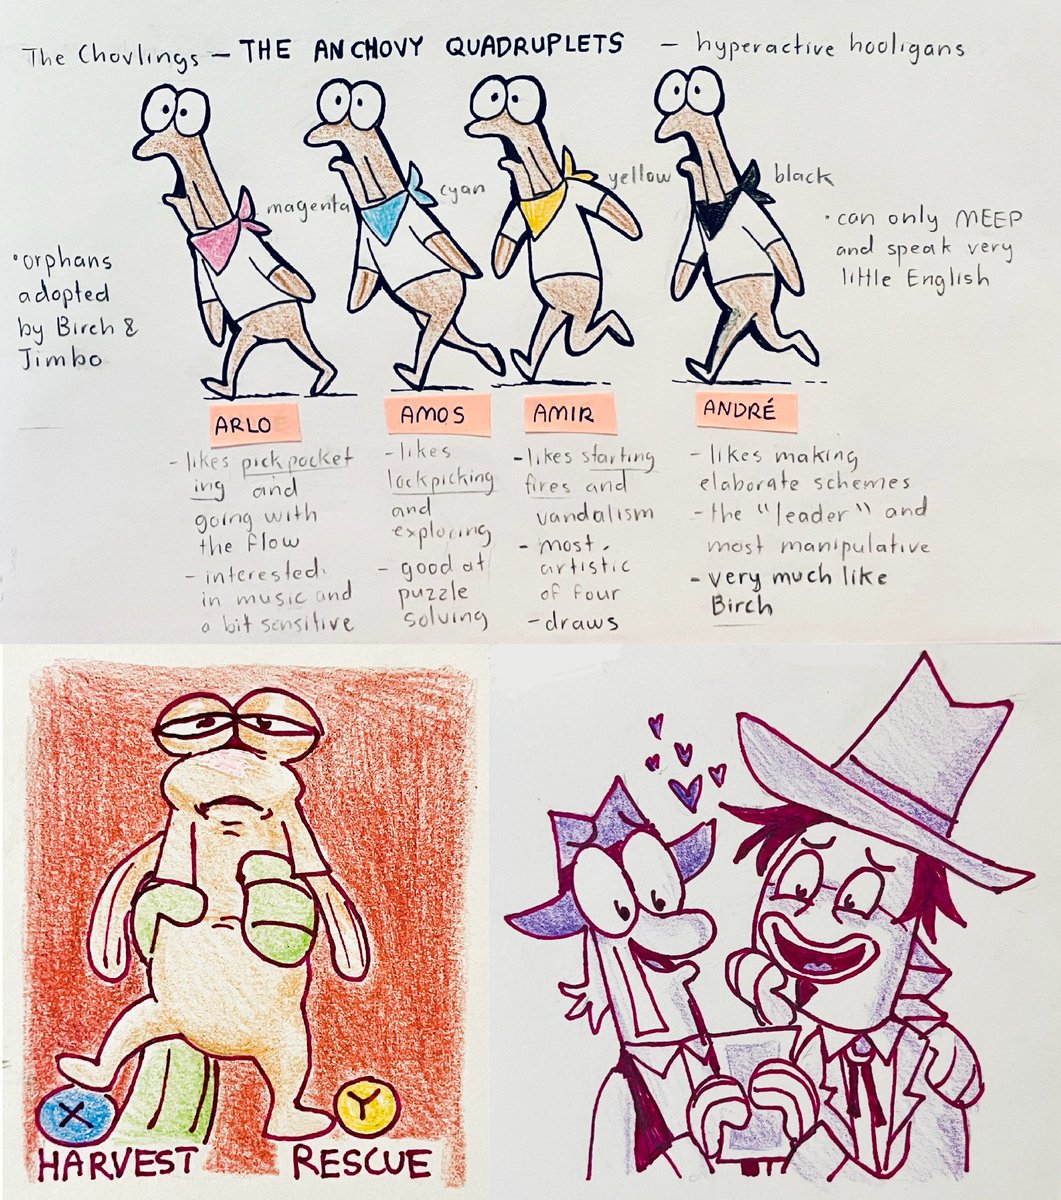 The Chovlings — THE ANCHOVY QUADRUPLETS — hyperactive hooligans
magenta
cyan
yellow
black
• orphans
adopted
by Birch &
Jimbo
• can only MEEP
and speak very
little English
ARLO
- likes pickpocket
ing and
going with
the flow
- interested
in music and
a bit sensitive
AMOS
- likes
lockpicking
and
exploring
- good at
puzzle
solving
AMIR
- likes starting
fires and
vandalism
- most
artistic
of four
- draws
ANDRÉ
- likes making
elaborate schemes
- the "leader" and
most manipulative
- very much like
Birch
X
Y
HARVEST
RESCUE